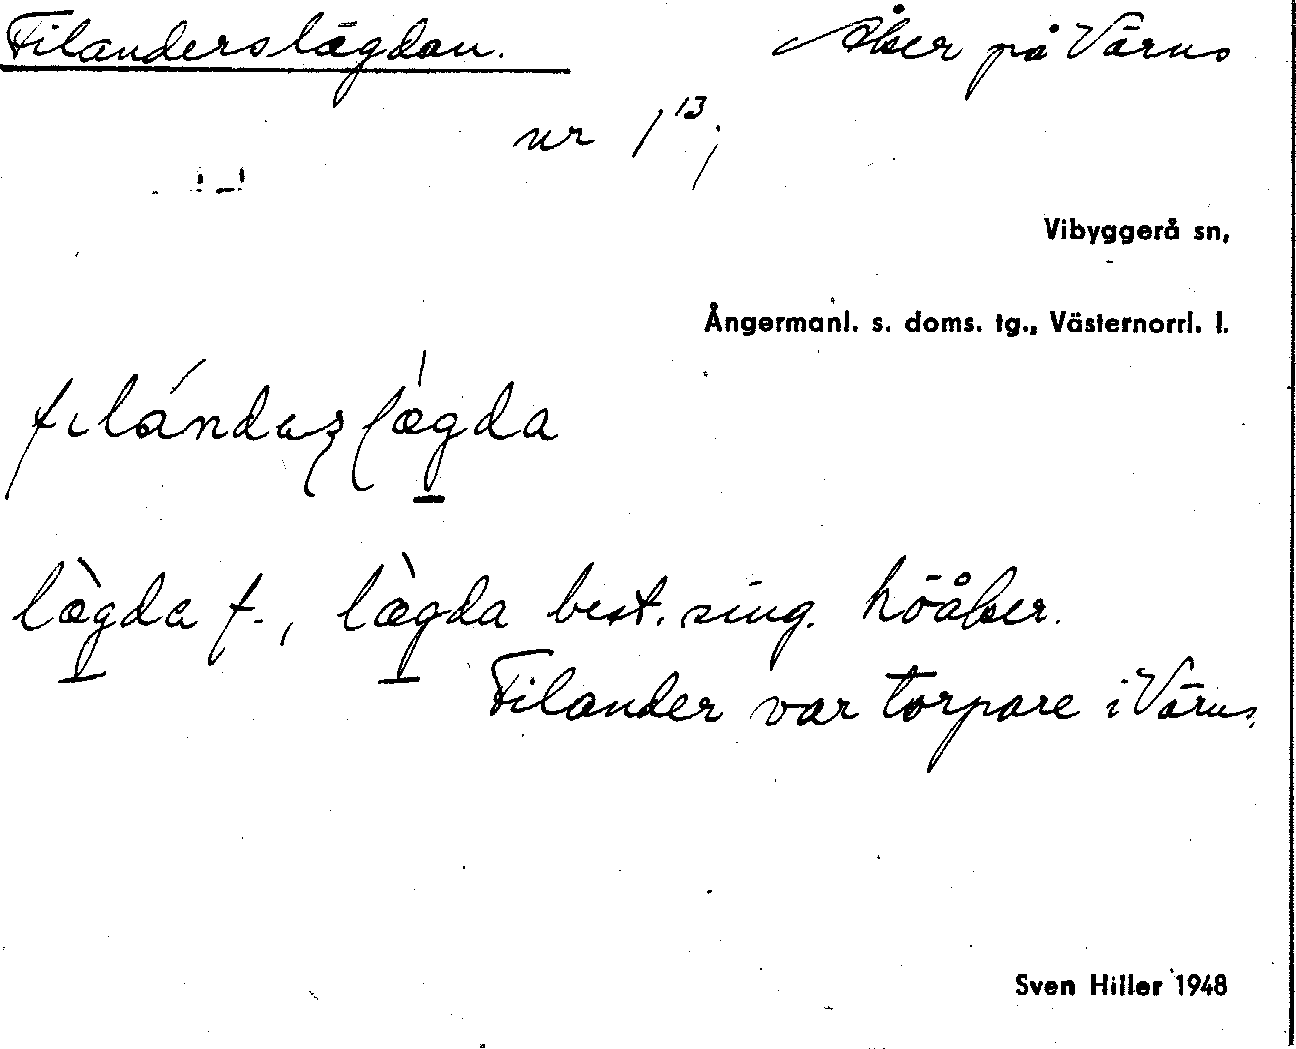 Filanderslägdan. Åker på Värns
nr 1¹³;
Vibyggerå sn,
Ångermanl. s. doms. tg., Västernorrl. l.
lægda f., lægda best. sing. höåker.
Filander var torpare i Värns.
Sven Hiller 1948